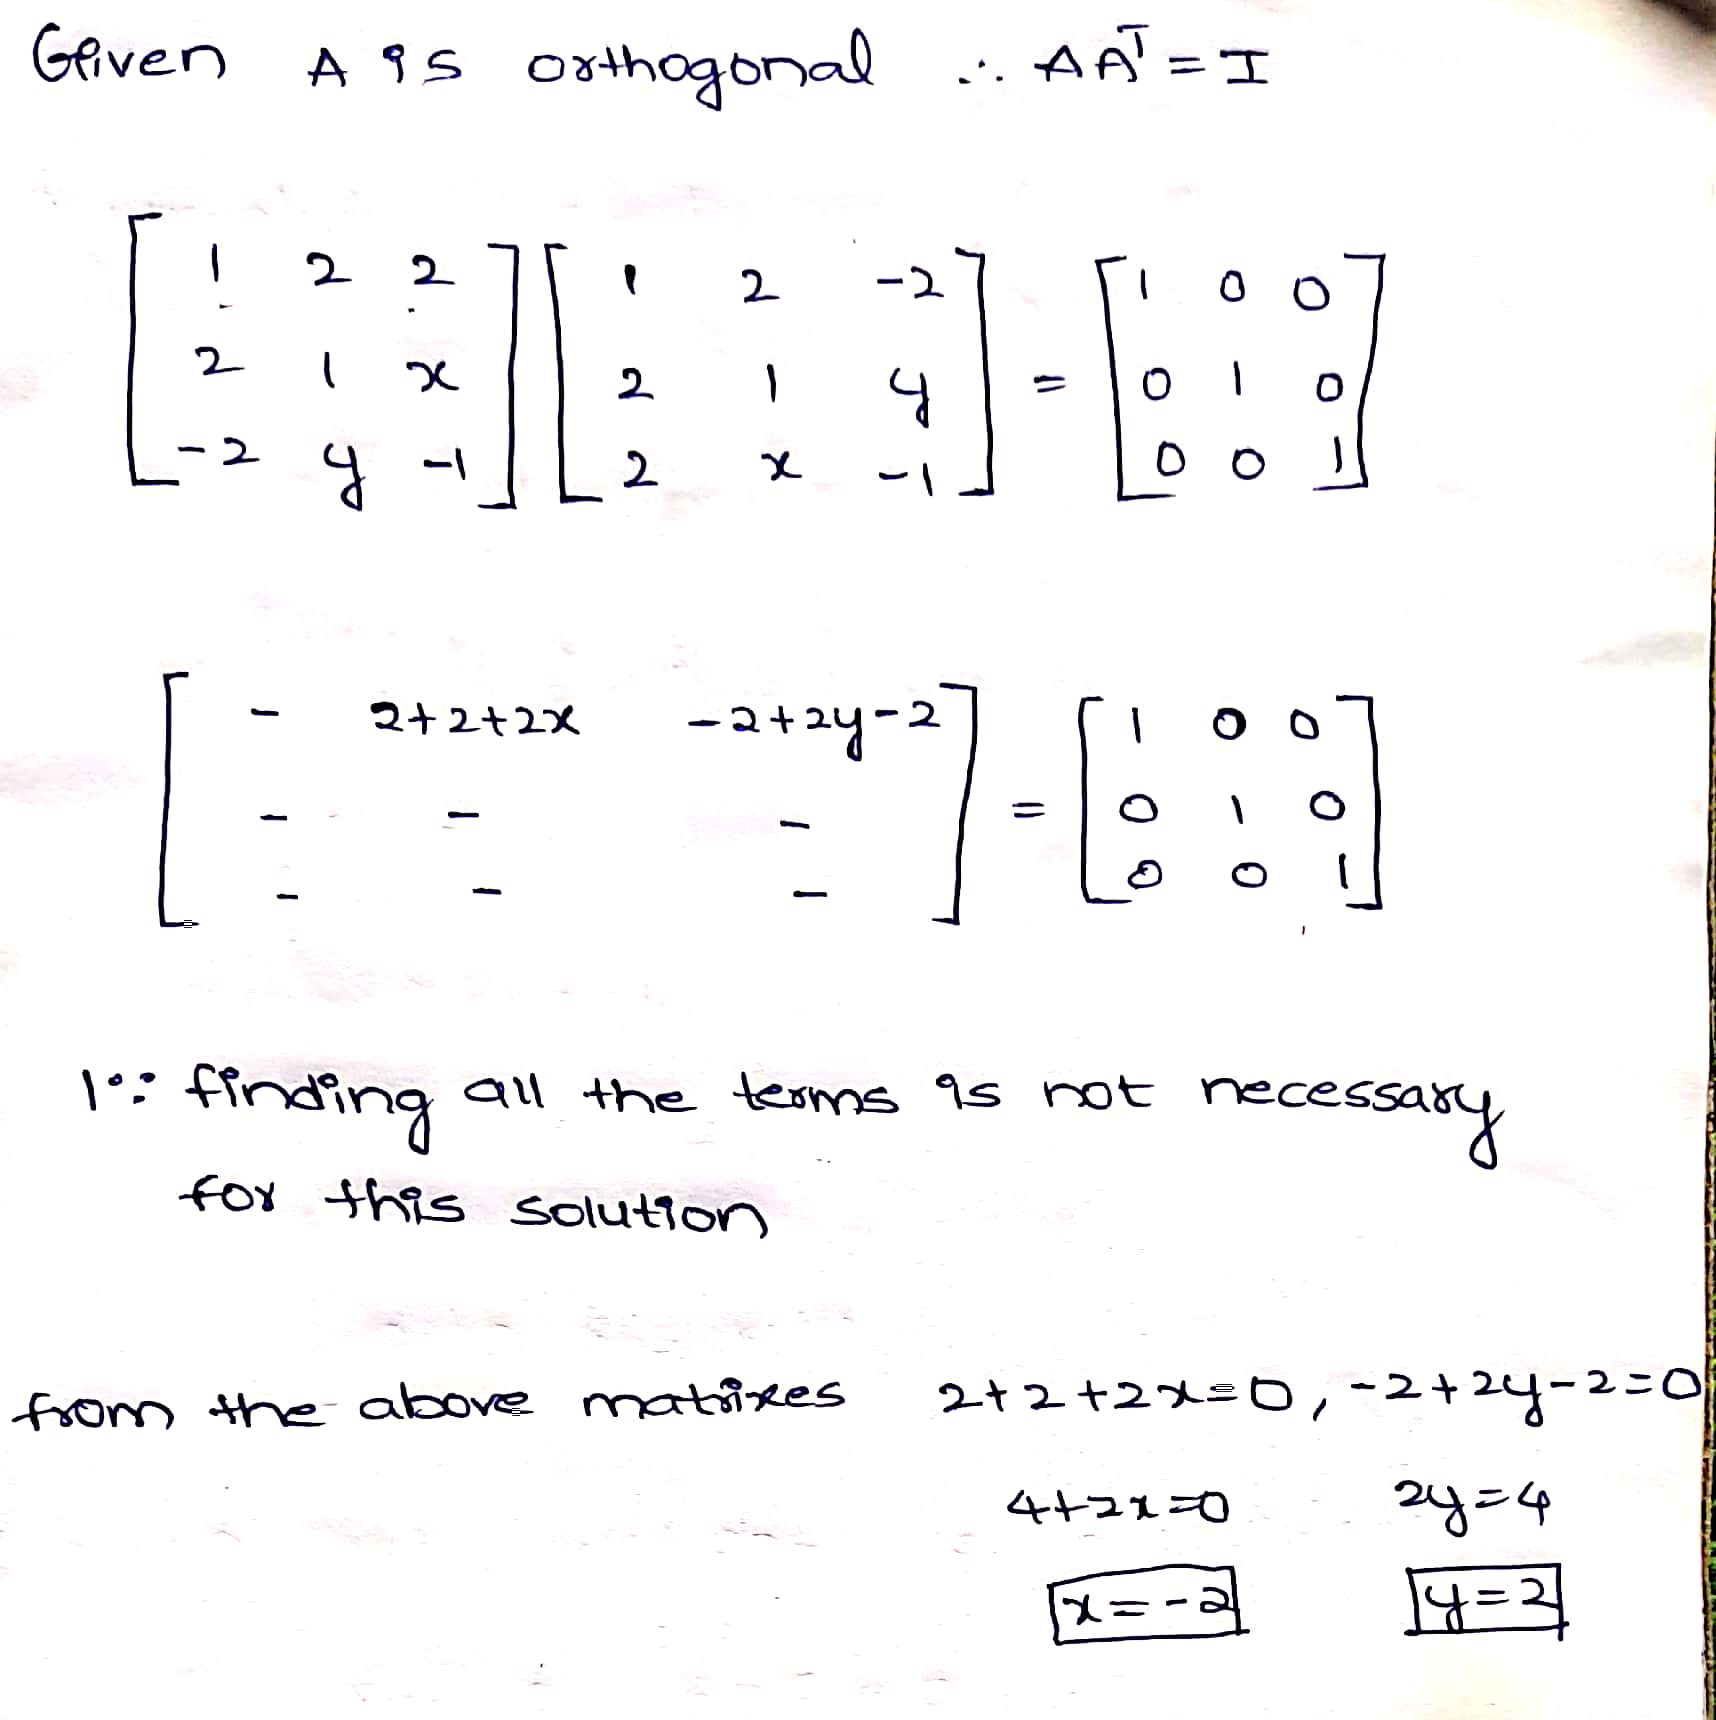 Given A is orthogonal ∴ AAᵀ = I
[ 1 2 2 ] [ 1 2 -2 ] [ 1 0 0 ]
[ 2 1 x ] [ 2 1 y ] = [ 0 1 0 ]
[ -2 y -1 ] [ 2 x -1 ] [ 0 0 1 ]
[ - 2+2+2x -2+2y-2 ] [ 1 0 0 ]
[ - - - ] = [ 0 1 0 ]
[ - - - ] [ 0 0 1 ]
∵ finding all the terms is not necessary
for this solution
from the above matrixes 2+2+2x=0, -2+2y-2=0
4+2x=0 2y=4
x=-2 y=2